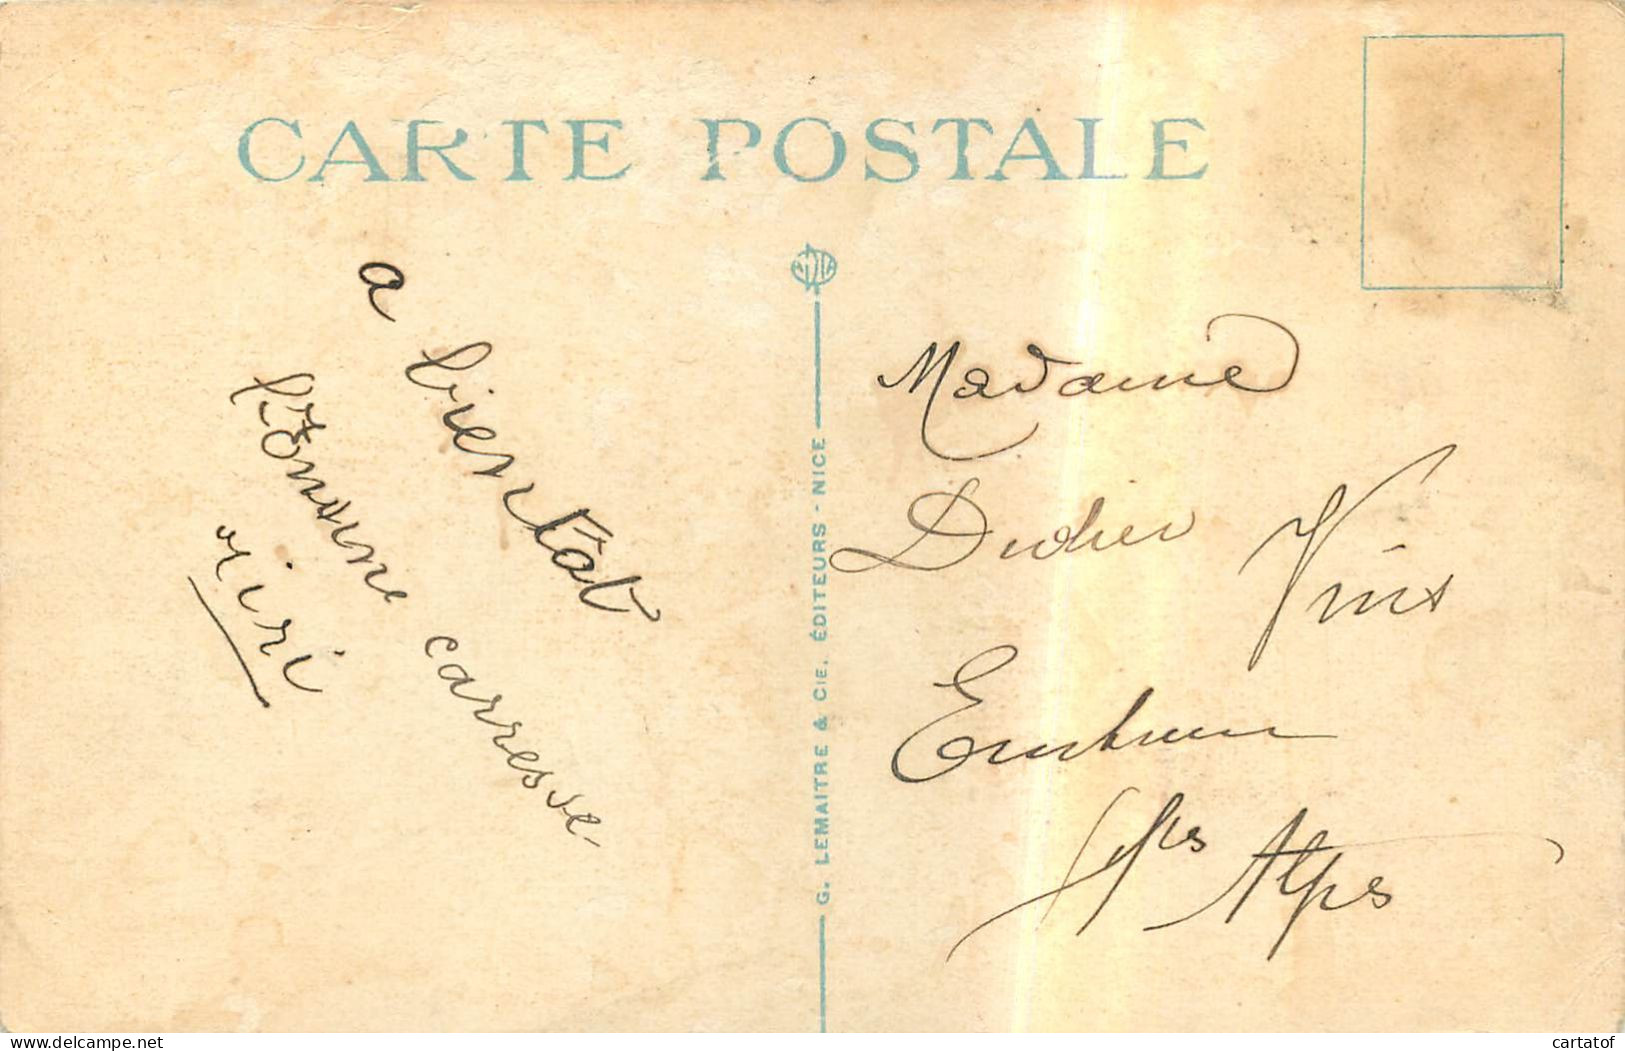 CARTE POSTALE
a bientôt
bonne carresse
riri
G. LEMAITRE & CIE. ÉDITEURS - NICE
Madame
Didier Vins
Embrun
Htes Alpes
delcampe.net
cartatof